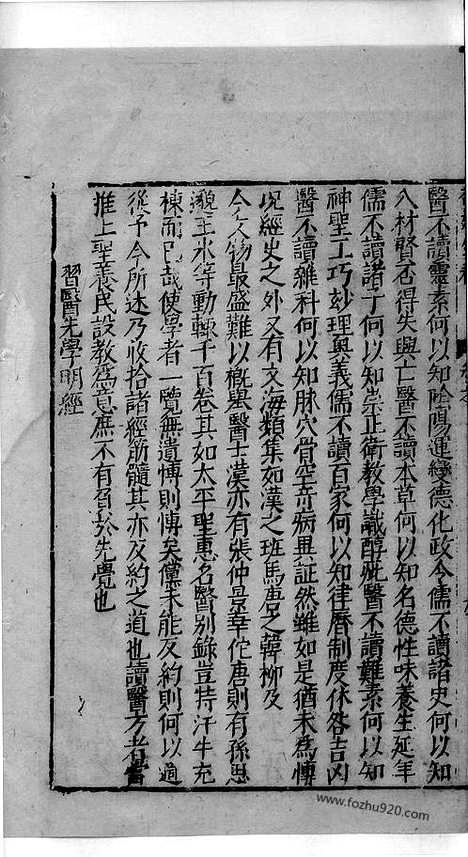 醫不讀靈素何以知陰陽運變德化政令儒不讀諸史何以知
人材賢否得失興亡醫不讀本草何以知名德性味養生延年
儒不讀諸子何以知崇正衛教學識醇疵醫不讀難素何以知
神聖工巧妙理奧義儒不讀百家何以知律曆制度休咎吉凶
醫不讀雜科何以知脉穴骨空奇病異証然雖如是猶未為博
况經史之外又有文海類集如漢之班馬唐之韓柳及
今文物最盛難以概舉醫士漢亦有張仲景華佗唐則有孫思
邈王氷等動輙千百卷其如太平聖惠名醫别錄豈特汗牛充
棟而已哉使學者一覽無遺博則博矣儻未能反約則何以適
從予今所述乃收拾諸經筋髓其亦反約之道也讀醫方者當
推上聖養民設教為意庶不有負於先覺也
習醫先學明經
www.fozhu920.com